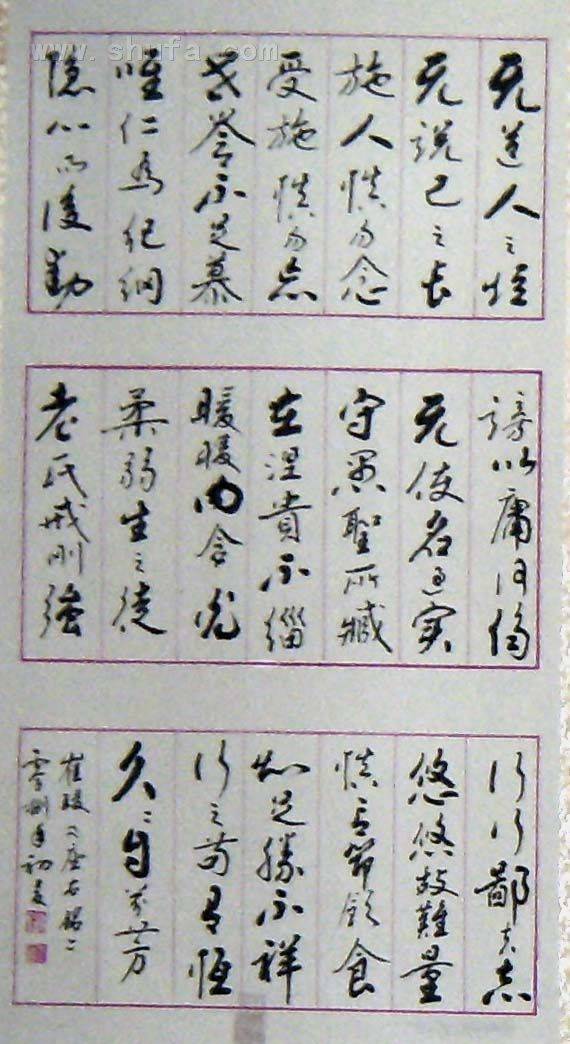 www.shufa.com
无道人之短
无说己之长
施人慎勿念
受施慎勿忘
世誉不足慕
唯仁为纪纲
隐心而後动
谤以庸何伤
无使名过实
守愚聖所臧
在涅貴不缁
暧暧内含光
柔弱生之徒
老氏戒刚強
行行鄙夫志
悠悠故難量
慎言节饮食
知足勝不祥
行之苟有恒
久久自芬芳
崔瑗之座右銘二
零捌年初夏